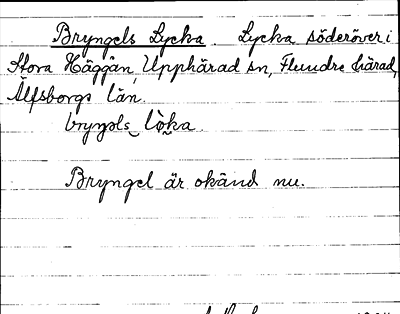 Bryngels Lycka. Lycka söderöver i
Stora Häggån, Upphärad sn, Flundre härad,
Älfsborgs län.
Bryngel är okänd nu.